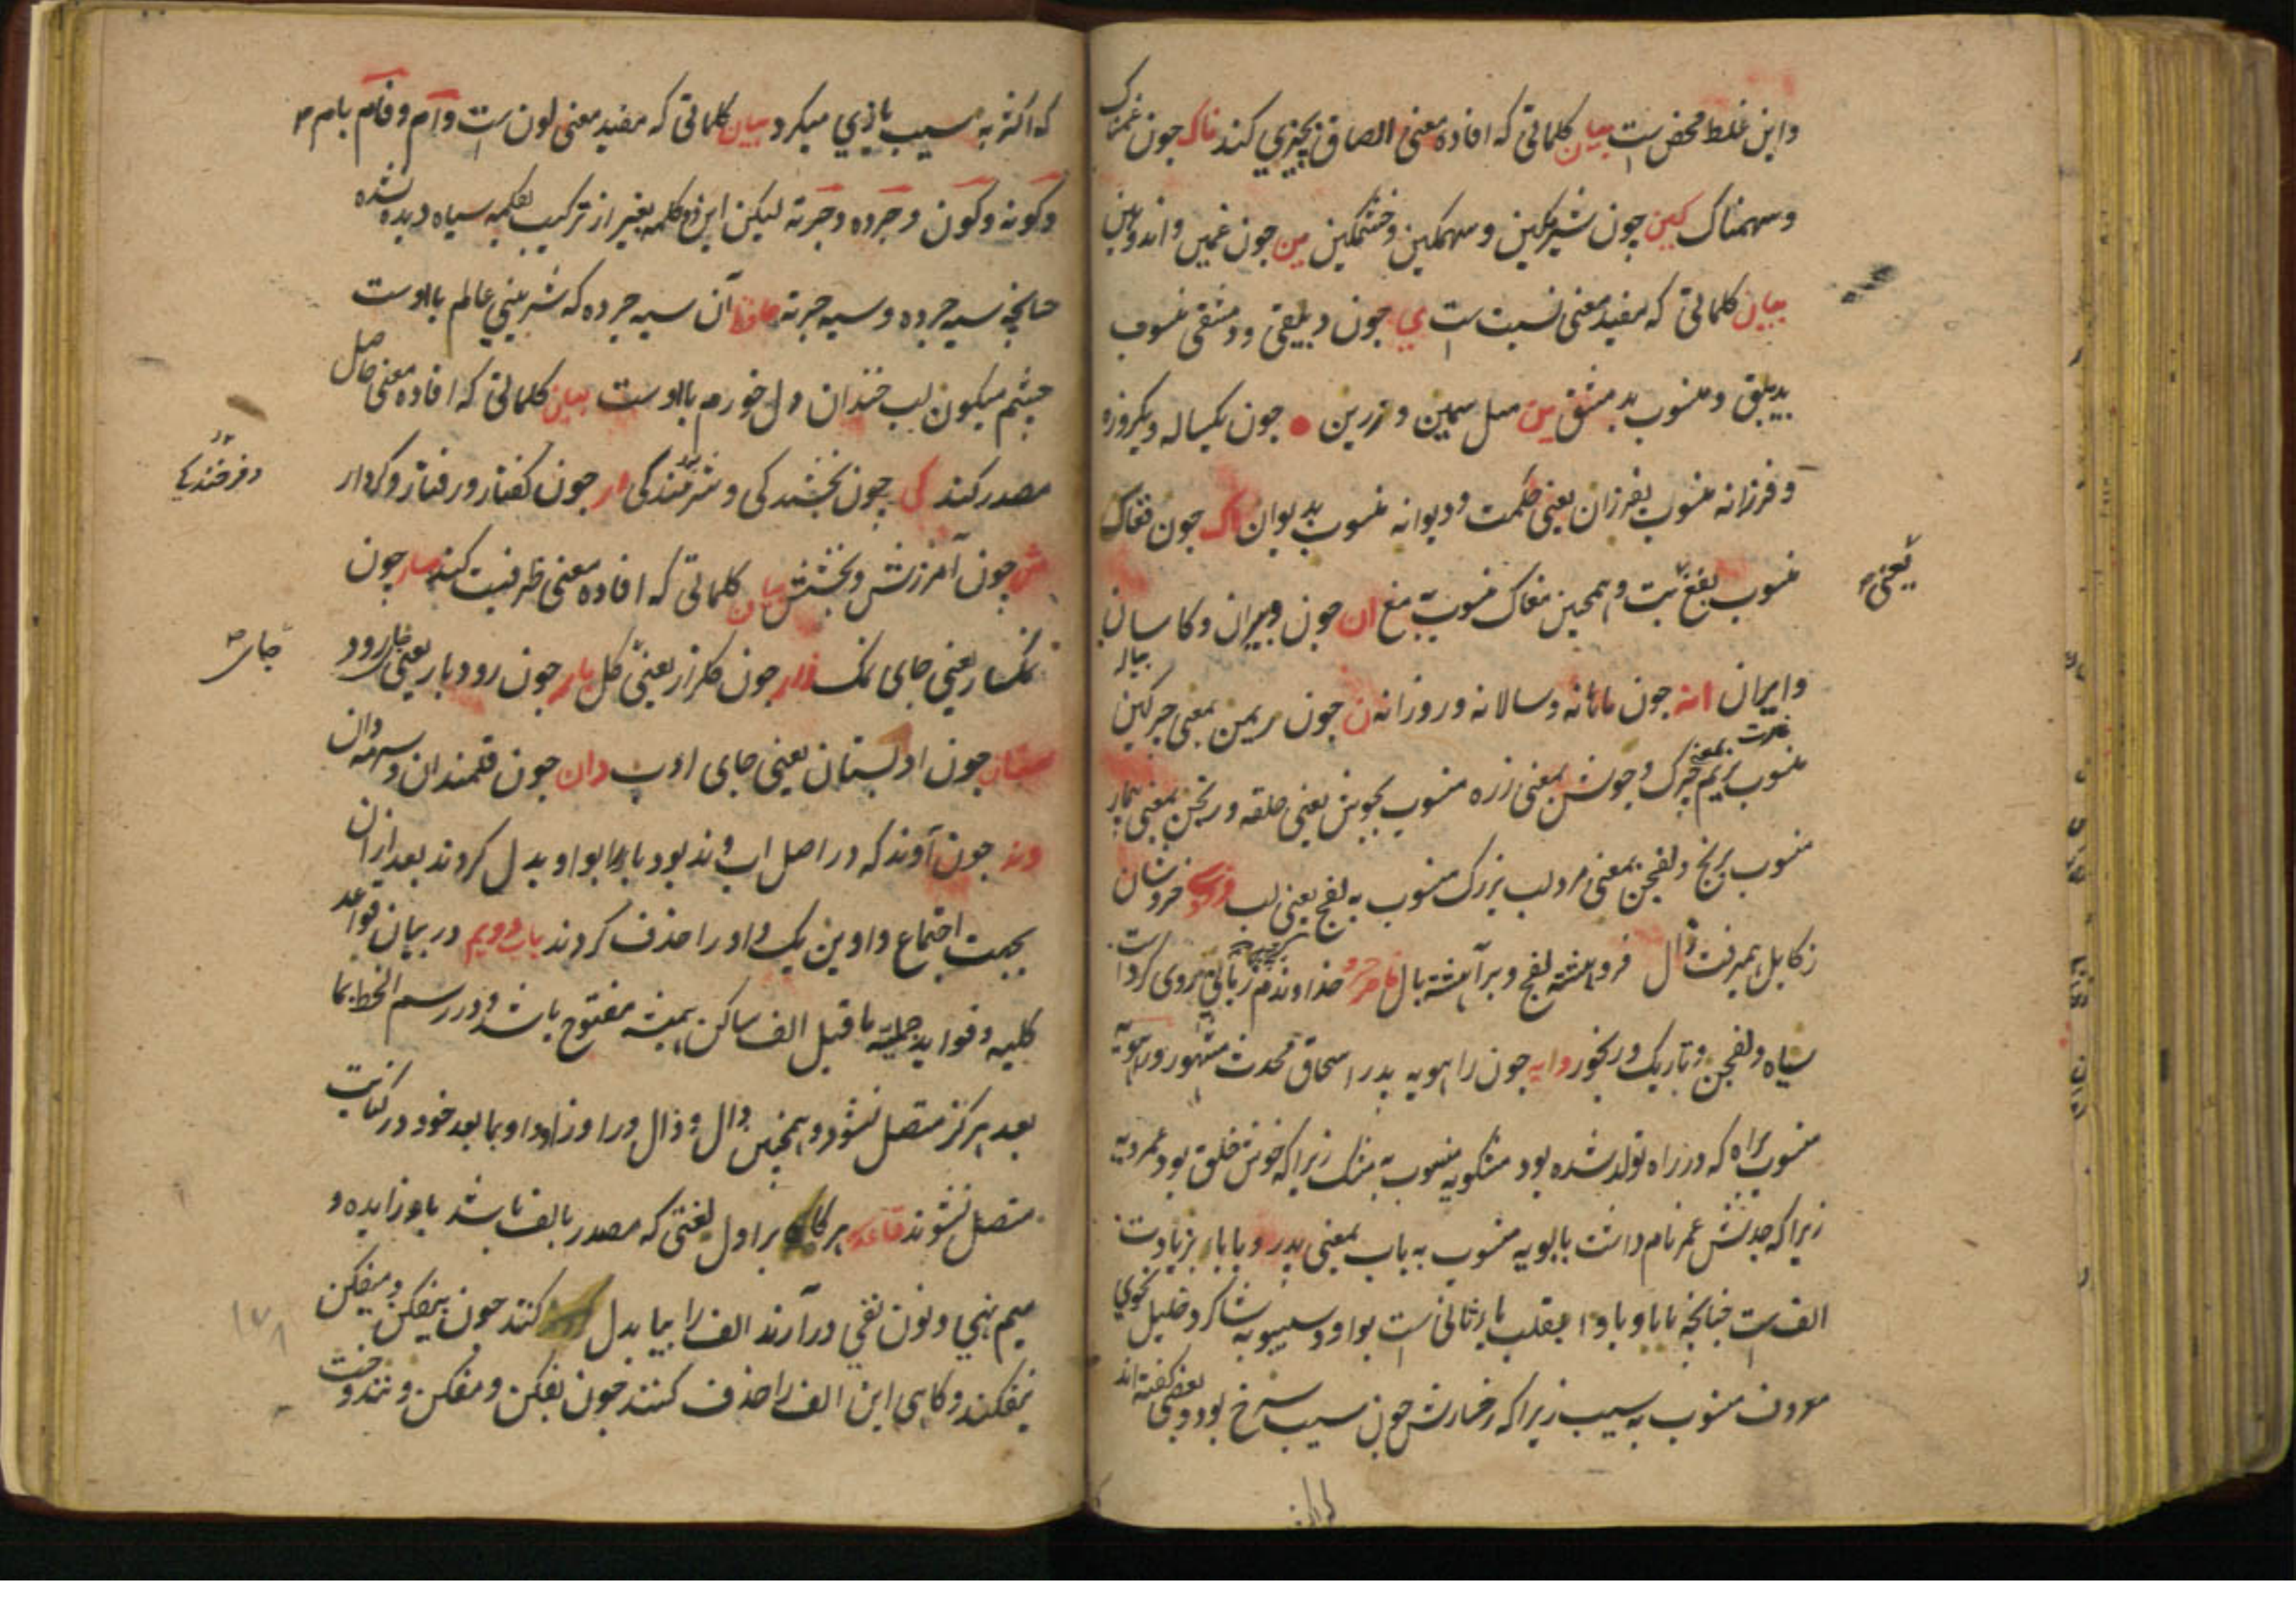 و این غلط محض است بیان کلماتی که افاده معنی الصاق بچیزی کند ناک چون غمناک
و سهمناک کین چون شرمکین و سهمکین و خشمکین ین چون غمین و اندوهین
بیان کلماتی که مفید معنی نسبت است ی چون دبیقی و دمشقی منسوب
بدیبق و منسوب بدمشق ین مثل سیمین و زرین ه چون یکساله و یکروزه
و فرزانه منسوب بفرزان یعنی حکمت و دیوانه منسوب بدیوان اک چون فغاک
منسوب بفغ بت و همچنین مغاک منسوب به مغ ان چون و کاسان
یعنی
و ایران انه چون ماهانه و سالانه و روزانه ن چون ریمن بمعنی چرکین
منسوب بریم بمعنی چرک و جوشن بمعنی زره منسوب بجوش یعنی حلقه و رنجن بمعنی بیمار
منسوب برنج و لفجن بمعنی مرد لب بزرک منسوب به لفج یعنی لب فردوسی خروشان
ز کابل همی رفت زال فروهشته لفج و برآهیخته بال ناصر خسرو خداوندم روی کردست
سیاه و لفجن و تاریک و رنجور ویه چون راهویه پدر اسحاق محدث مشهور و راهویه
منسوب براه که در راه تولد شده بود مشکویه منسوب به مشک زیرا که خوش خلق بود عمرویه
زیرا که جدش عمر نام داشت بابویه منسوب به باب بمعنی پدر و بابا بزیادت
الف است چنانچه بابا و باوا بقلب باء ثانی است بواو و سیبویه شاکرد خلیل نحوی
معروف منسوب به سیب زیرا که رخسارش چون سیب سرخ بود و بعضی کفته اند
که اکثر به سیب بازی میکرد بیان کلماتی که مفید معنی لون است وام و فام بام
و کونه و کون و جرده و جرته لیکن این دو کلمه بغیر از ترکیب بکلمه سیاه دیده نشده
چنانچه سیه جرده و سیه جرته حافظ آن سیه جرده که شیرینی عالم با اوست
چشم میکون لب خندان دل خورم با اوست بیان کلماتی که افاده معنی حاصل
مصدر کند کی چون بخشندکی و شرمندکی ار چون کفتار و رفتار و کردار
و فرخندکی
ش چون آمرزش و بخشش بیان کلماتی که افاده معنی ظرفیت کند سار چون
نمکسار یعنی جای نمک زار چون کلزار یعنی کل بار چون رودبار یعنی جای رود
جای
ستان چون ادبستان یعنی جای ادب دان چون قلمندان و سرمه دان
وند چون آوند که در اصل آب وند بود با را بواو بدل کردند بعد از آن
بجهت اجتماع واوین یک واو را حذف کردند باب دویم در بیان قواعد
کلیه و فواید جملیه ماقبل الف ساکن همیشه مفتوح باشد و در رسم الخط بما
بعد هرکز متصل نشود و همچنین دال و ذال و را و زا و واو بما بعد خود در کتابت
متصل نشوند قاعده هرکاه بر اول لغتی که مصدر بالف باشد با زایده و
میم نهی و نون نفی درآرند الف را بیا بدل کنند چون بیفکن و میفکن
نیفکند و کاهی این الف را حذف کنند چون بفکن و مفکن و نندوخت